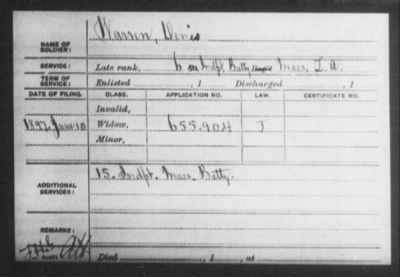 NAME OF SOLDIER: Warren, Denis
SERVICE: Late rank, 6 Indpt Batty Mass. L.A.
TERM OF SERVICE: Enlisted , 1 Discharged , 1
DATE OF FILING. CLASS. APPLICATION NO. LAW. CERTIFICATE NO.
Invalid,
1892 June 10 Widow, 655.904 J
Minor,
ADDITIONAL SERVICES: 15. Indpt. Mass. Batty.
REMARKS:
Died , 1 , at